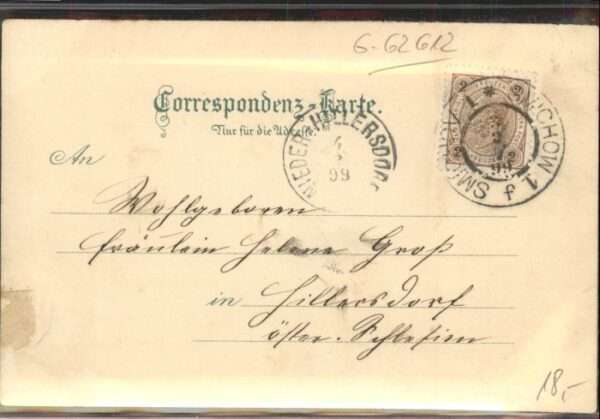 6-62612
Correspondenz-Karte.
Nur für die Adresse.
NIEDER-HILLERSDORF
99
SMICHOW 1
2 2
2 2
An
Wohlgeboren
Fräulein Helene Groß
in Hillersdorf
öster. Schlesien
18,-